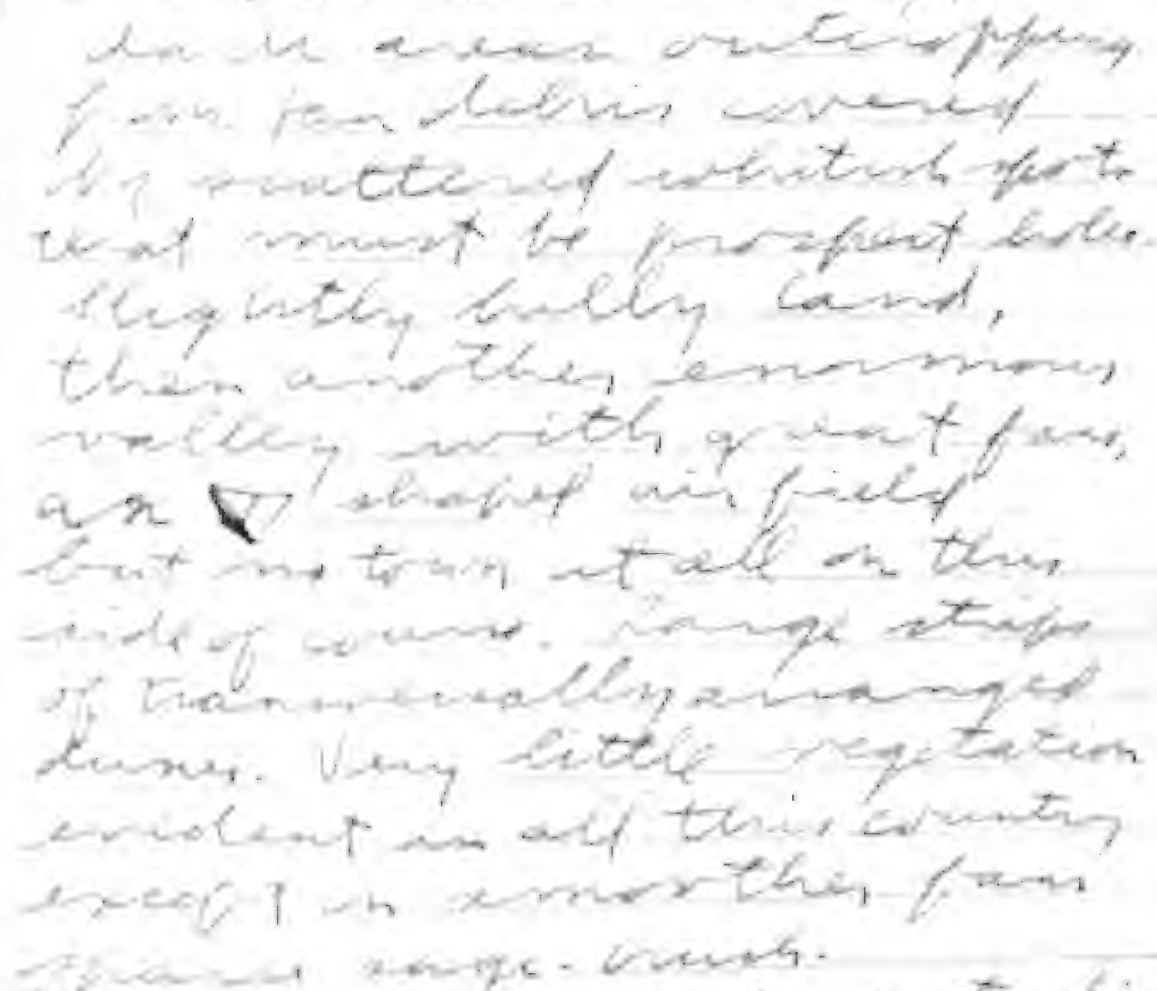 dark areas outcropping
from fan debris covered
by scattered whitish spots
that must be prospect holes.
Slightly hilly land,
then another enormous
valley with great fans,
an shaped airfield
but no town at all on this
side of course. range strips
of transversally arranged
dunes. Very little vegetation
evident in all this country
except on smoother fans
sparse sage-brush.